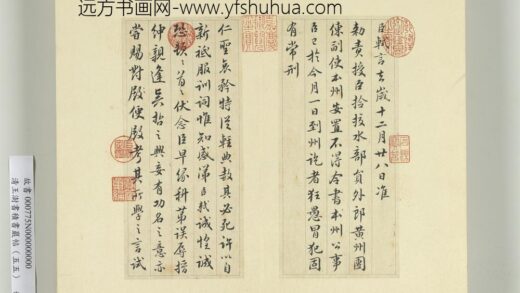 远方书画网-www.yfshuhua.com
臣軾言去歲十二月廿八日准
勅責授臣檢校水部員外郎黃州團
練副使本州安置不得簽書本州公事
臣已於今月一日到州訖者狂愚冒犯固
有常刑
仁聖哀矜特從輕典赦其必死許以自
新祗服訓詞惟知感涕臣軾誠惶誠
恐頓首頓首伏念臣早緣科第誤辱搢
紳親逢
之興妄有功名之意亦
嘗賜對
便殿考其所學之言試
故書000775N000000000
清王澍書積書巖帖(五五)